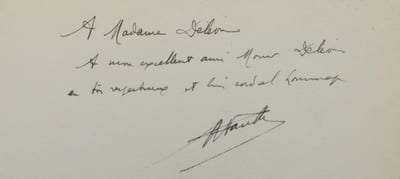 A Madame Deleoi
A mon excellent ami Monsr Deleoi
en très respectueux et bien cordial hommage